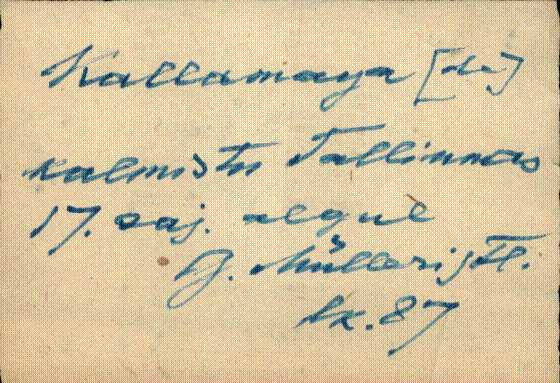 Kallamaya [de]
kalmistu Tallinnas
17. saj. algul
G. Mülleri jutl.
lk. 87